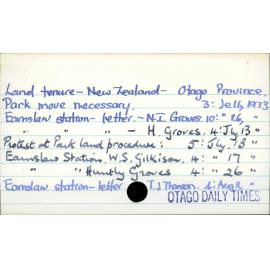 Land tenure - New Zealand - Otago Province.
Park move necessary. 3: Feb, 1973
Earnslaw station - letter - N.I. Groves. 10: " 26, "
" " " - H. Groves. 4: Jly, 13 "
Protest at Park land procedure: 5: Jly, 13 "
Earnslaw Station. W.S. Gilkison. 4: " 17 "
" " Huntly Groves 4: " 26 "
Earnslaw station - letter T.J. Thomson. 4: Aug 2 "
OTAGO DAILY TIMES